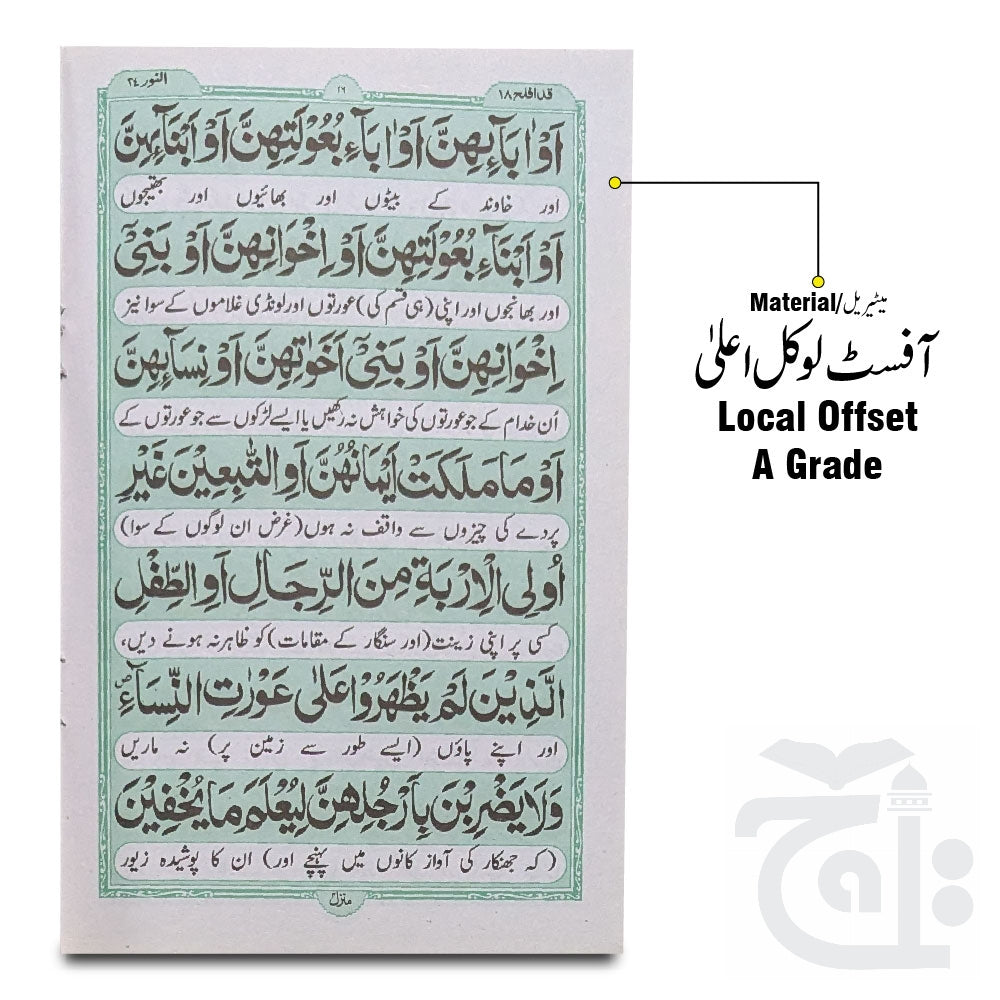 النور ٢٤
١٦
قد افلح ١٨
اَوْ اٰبَآئِهِنَّ اَوْ اٰبَآءِ بُعُوْلَتِهِنَّ اَوْ اَبْنَآئِهِنَّ
اور خاوند کے بیٹوں اور بھائیوں اور بھتیجوں
اَوْ اَبْنَآءِ بُعُوْلَتِهِنَّ اَوْ اِخْوَانِهِنَّ اَوْ بَنِیْۤ
اور بھانجوں اور اپنی (ہی قسم کی) عورتوں اور لونڈی غلاموں کے سوا نیز
اِخْوَانِهِنَّ اَوْ بَنِیْۤ اَخَوٰتِهِنَّ اَوْ نِسَآئِهِنَّ
اُن خدام کے جو عورتوں کی خواہش نہ رکھیں یا ایسے لڑکوں سے جو عورتوں کے
اَوْ مَا مَلَكَتْ اَیْمَانُهُنَّ اَوِ التّٰبِعِیْنَ غَیْرِ
پردے کی چیزوں سے واقف نہ ہوں (غرض ان لوگوں کے سوا)
اُولِی الْاِرْبَةِ مِنَ الرِّجَالِ اَوِ الطِّفْلِ
کسی پر اپنی زینت (اور سنگار کے مقامات) کو ظاہر نہ ہونے دیں،
الَّذِیْنَ لَمْ یَظْهَرُوْا عَلٰى عَوْرٰتِ النِّسَآءِ ۪
اور اپنے پاؤں (ایسے طور سے زمین پر) نہ ماریں
وَ لَا یَضْرِبْنَ بِاَرْجُلِهِنَّ لِیُعْلَمَ مَا یُخْفِیْنَ
(کہ جھنکار کی آواز کانوں میں پہنچے اور) ان کا پوشیدہ زیور
Material/میٹیریل
آفسٹ لوکل اعلیٰ
Local Offset
A Grade